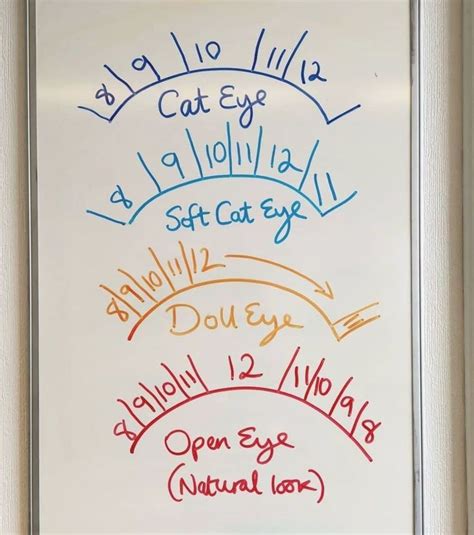 8 9 10 11 12
Cat Eye
8 9 10 11 12 11
Soft Cat Eye
8 9 10 11 12
Doll Eye
8 9 10 11 12 11 10 9 8
Open Eye
(Natural look)